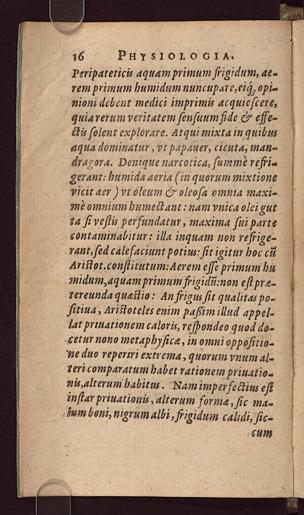 16 PHYSIOLOGIA.
Peripateticis aquam primum frigidum, ae-
rem primum humidum nuncupare, eiq́; opi-
nioni debent medici imprimis acquiescere,
quia rerum veritatem sensuum fide & effe-
ctis solent explorare. Atqui mixta in quibus
aqua dominatur, vt papauer, cicuta, man-
dragora. Denique narcotica, summè refri-
gerant: humida aeria (in quorum mixtione
vicit aer) vt oleum & oleosa omnia maxi-
mè omnium humectant: nam vnica olei gut
ta si vestis perfundatur, maxima sui parte
contaminabitur: illa inquam non refrige-
rant, sed calefaciunt potius: sit igitur hoc cũ
Aristot. constitutum: Aerem esse primum hu
midum, aquam primum frigidũ: non est præ-
tereunda quæstio: An frigus sit qualitas po-
sitiua, Aristoteles enim passim illud appel-
lat priuationem caloris, respondeo quod do-
cetur nono metaphysicæ, in omni oppositio-
ne duo reperiri extrema, quorum vnum al-
teri comparatum habet rationem priuatio-
nis, alterum habitus. Nam imperfectius est
instar priuationis, alterum formæ, sic ma-
lum boni, nigrum albi, frigidum calidi, sic-
cum